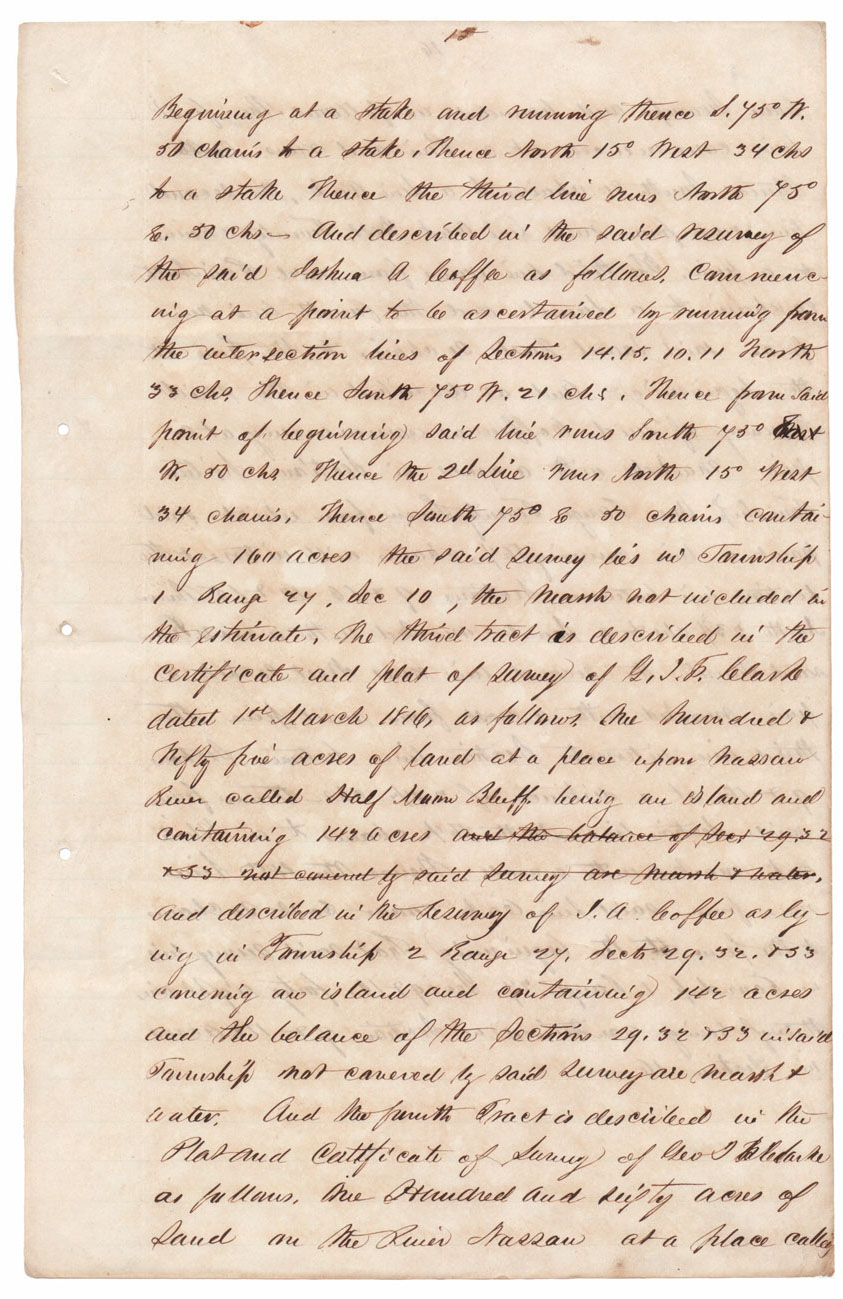 15
Beginning at a stake and running thence S. 75° W.
50 chains to a stake, Thence North 15° West 34 chs
to a stake Thence the third line runs North 75°
E. 50 chs — And described in the said resurvey of
the said Joshua A Coffee as follows. Commenc-
ing at a point to be ascertained by running from
the intersection lines of Sections 14. 15. 10. 11 North
33 chs. Thence South 75° W. 21 chs. Thence from said
point of beginning said line runs South 75°
W. 50 chs Thence the 2d Line runs North 15° West
34 chains, Thence South 75° E 50 chains contai-
ning 160 acres the said survey lies in Township
1 Range 27, Sec 10, the Marsh not included in
the estimate. The third tract is described in the
certificate and plat of survey of G. J. F. Clarke
dated 1st March 1816, as follows. One hundred &
Fifty five acres of land at a place upon Nassau
River called Half Moon Bluff being an island and
containing 142 acres and the balance of Sect 29. 32
& 33 not covered by said survey are marsh & water,
and described in the Resurvey of J. A. Coffee as ly-
ing in Township 2 Range 27. Sects 29. 32. & 33
covering an island and containing 142 acres
and the balance of the Sections 29. 32 & 33 in said
Township not covered by said survey are marsh &
water. And the fourth Tract is described in the
Plat and Cettificate of Survey of Geo J F Clarke
as follows. One Hundred and sixty acres of
Land on the River Nassau at a place called